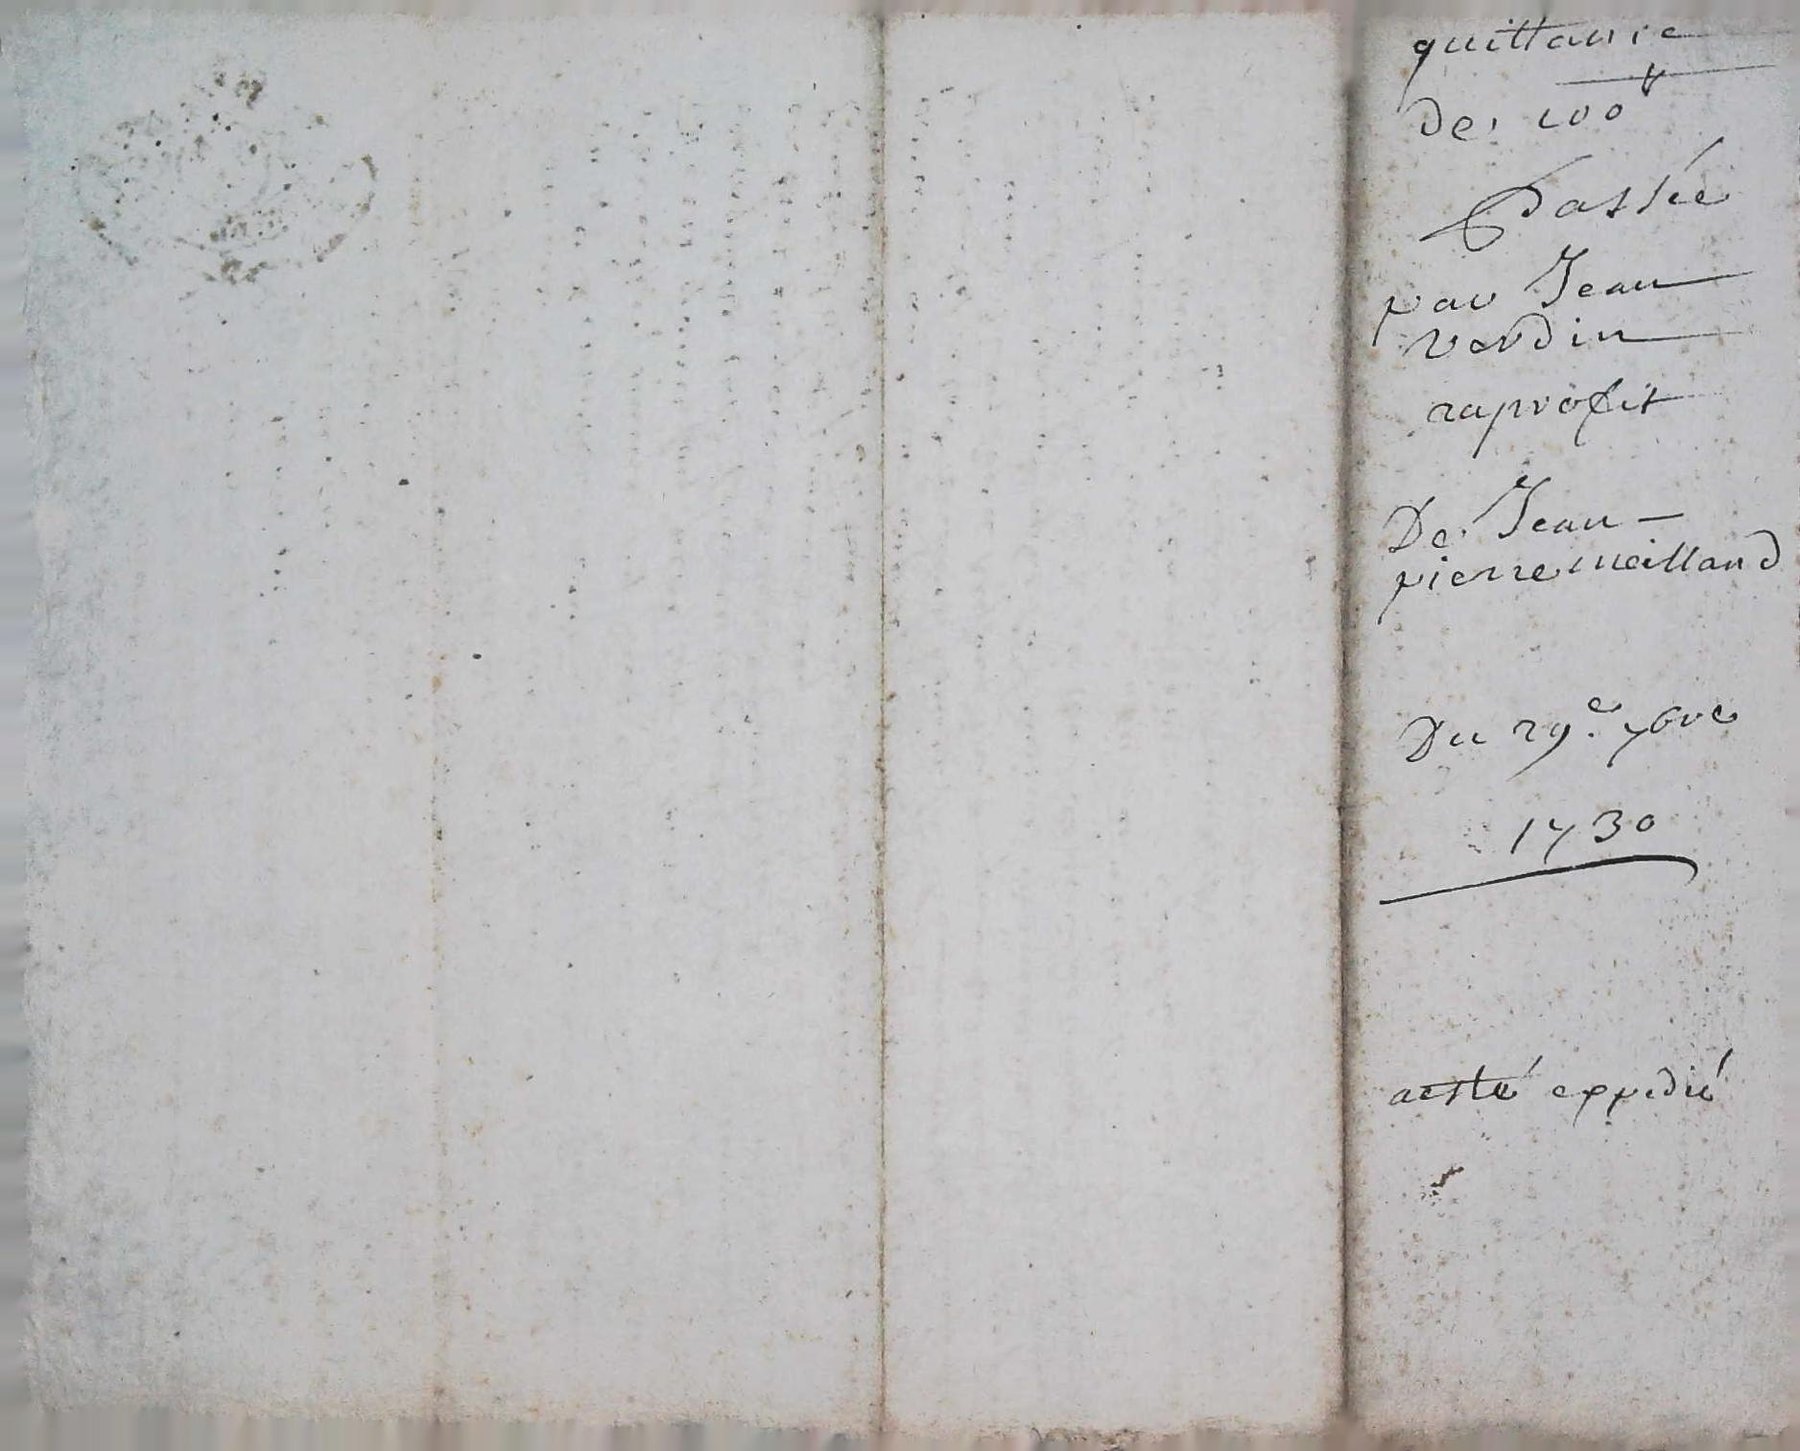 quittance
de 100#
Passée
par Jean
Verdin
auprofit
De Jean
pierre meilland
Du 29.e 7bre
1730
aesté expedié